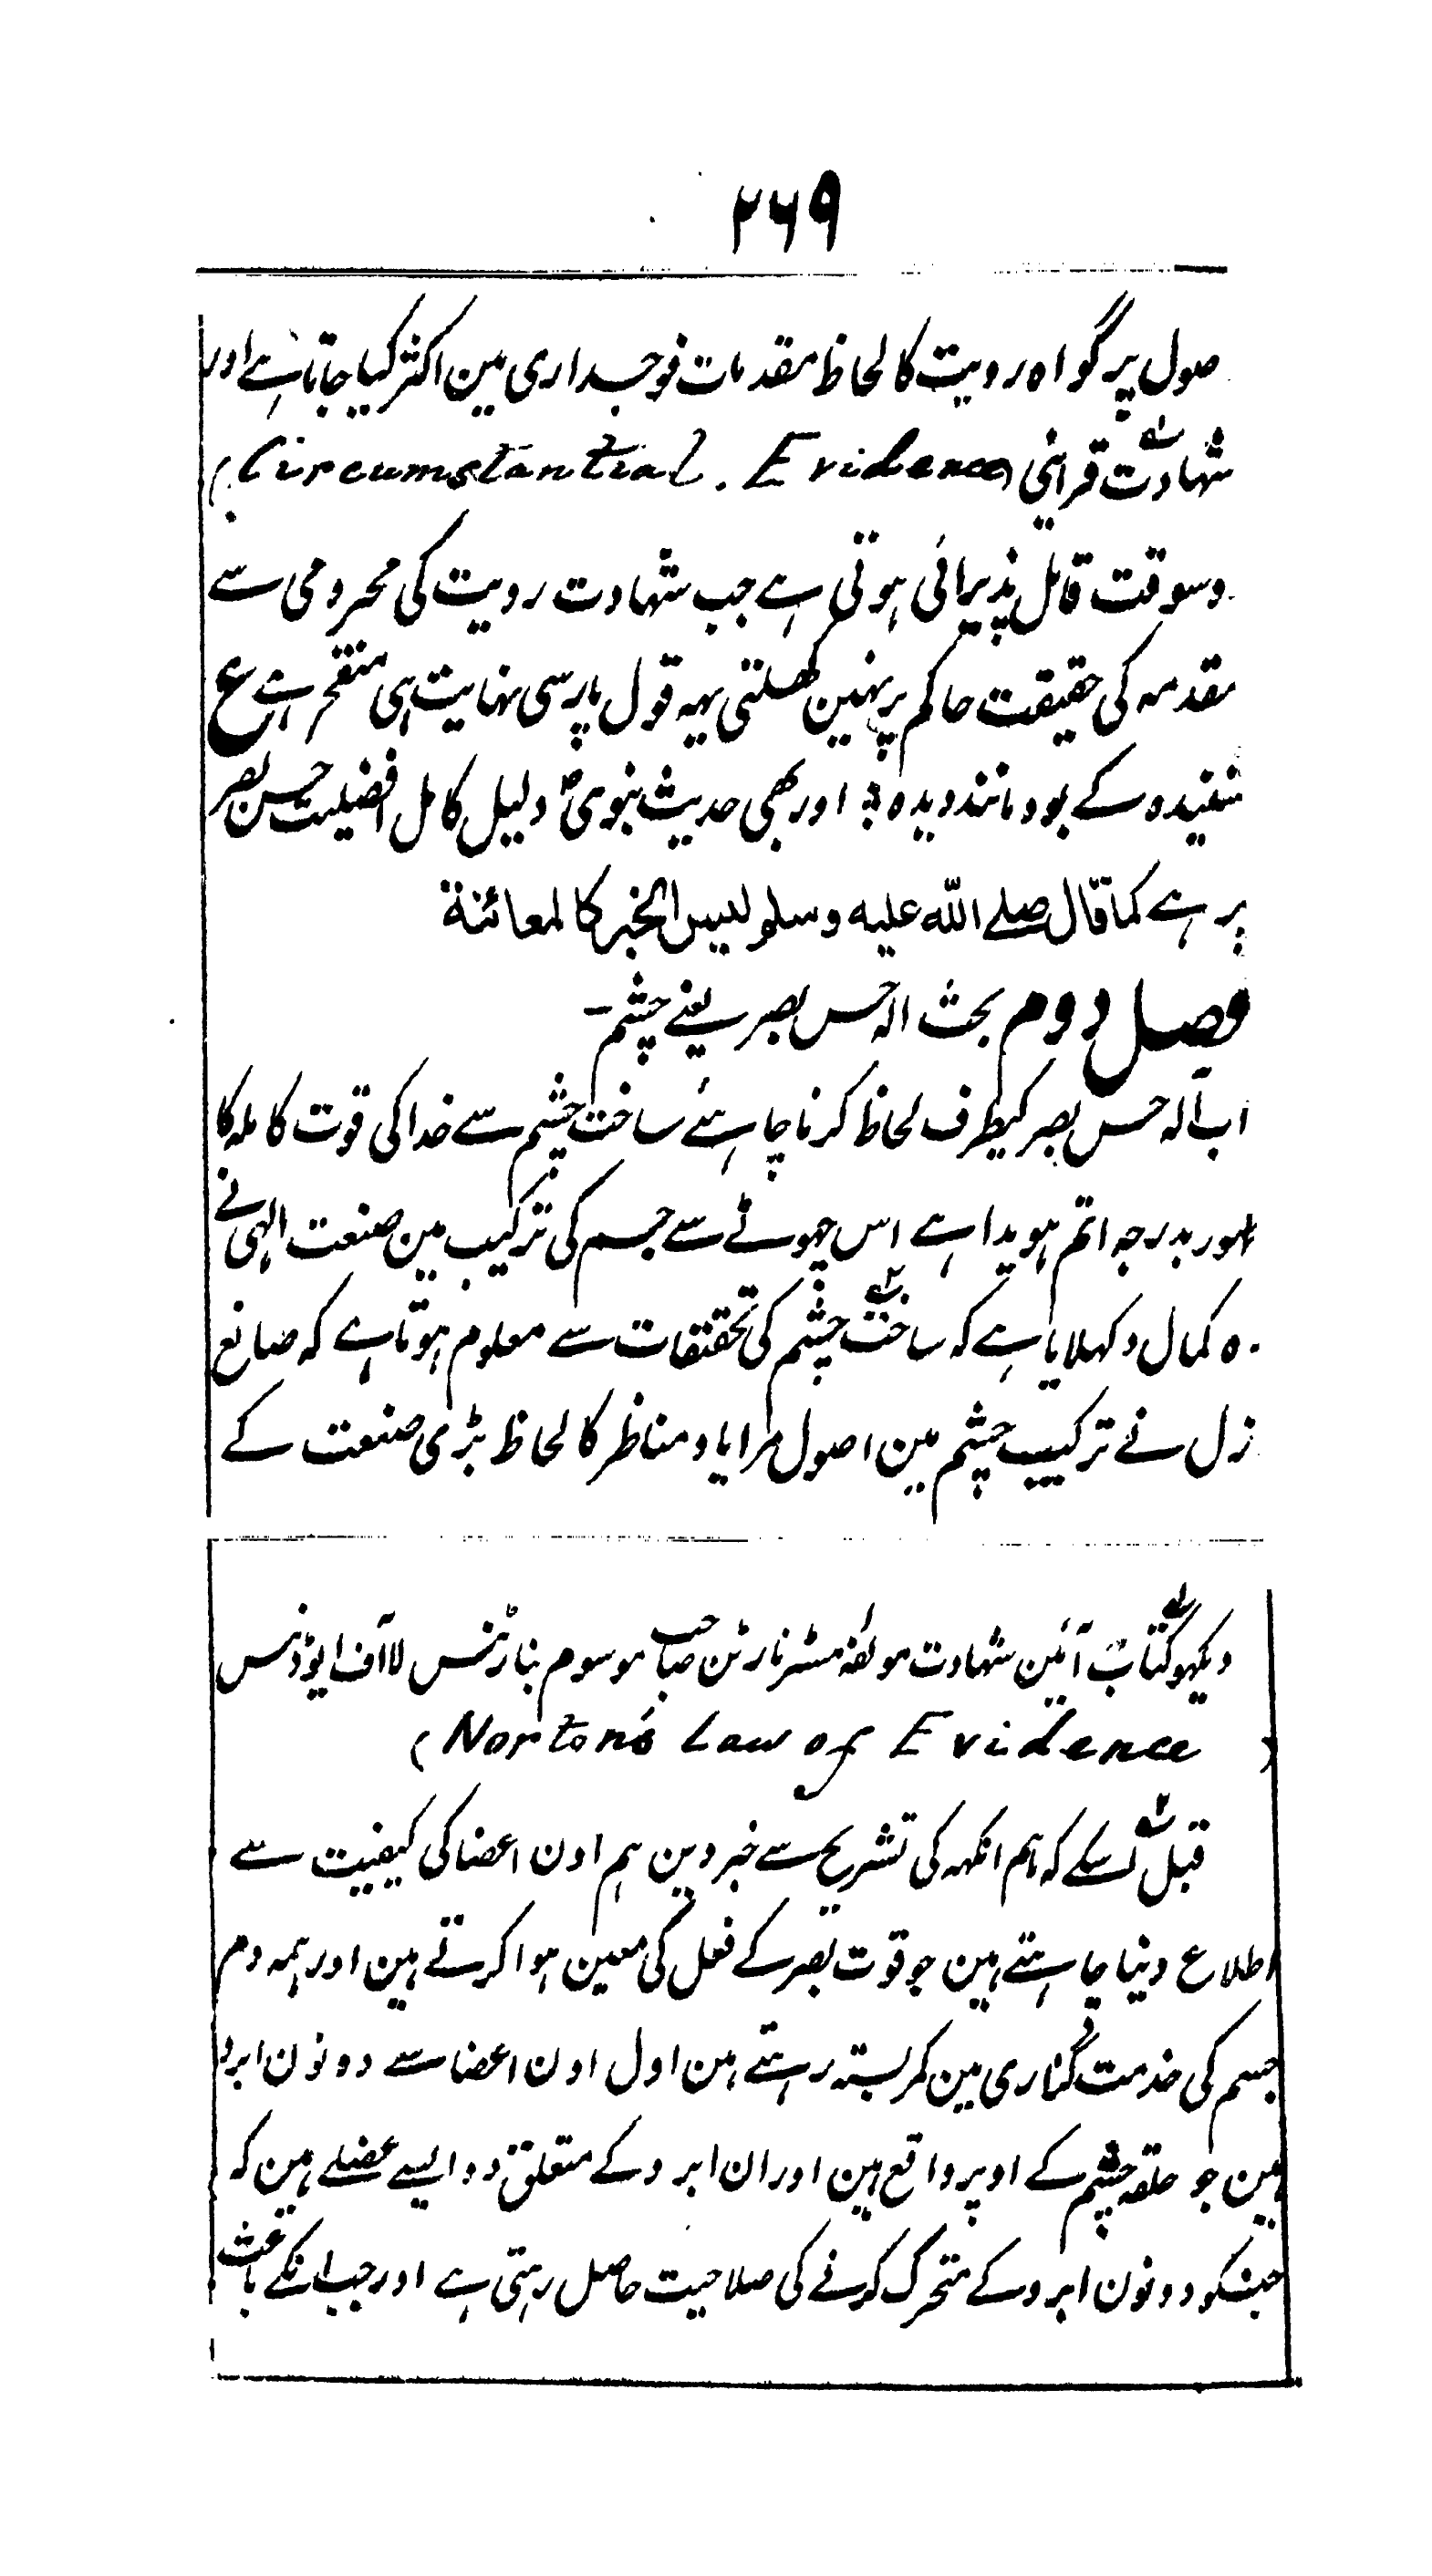 ۲۶۹
صول پر گواہ رویت کا لحاظ مقدمات فوجداری مین اکثر کیا جاتا ہے اور
شہادت قرائنی (Circumstantial Evidence)
وسوقت قابل پذیرائی ہوتی ہے جب شہادت رویت کی محرومی سے
مقدمہ کی حقیقت حاکم پر نہین کھلتی یہہ قول پارسی نہایت ہی منقح ہے ع
شنیدہ کے بود مانند دیدہ ؛ اور بھی حدیث نبوی ؐ دلیل کامل افضلیت حس بصر
پر ہے کما قال صلے اللہ علیہ وسلم لیس الخبر کالمعائنة
فصل دوم بحث آلہ حس بصر یعنے چشم ۔
اب آلہ حس بصر کیطرف لحاظ کرنا چاہئے ساخت چشم سے خدا کی قوت کاملہ کا
ظہور بدرجہ اتم ہویدا ہے اس چھوٹے سے جسم کی ترکیب مین صنعت الہی نے
وہ کمال دکہلایا ہے کہ ساخت۲ چشم کی تحقیقات سے معلوم ہوتا ہے کہ صانع
زل نے ترکیب چشم مین اصول مرایا و مناظر کا لحاظ بڑی صنعت کے
دیکہو کتاب آئین شہادت مولفہ مسٹر نارٹن صاحب موسوم بنارٹنس لا آف ایوڈنس
(Norton's Law of Evidence)
قبل۲ اسکے کہ ہم انکہہ کی تشریح سے خبر دین ہم اون اعضا کی کیفیت سے
اطلاع دینا چاہتے ہین جو قوت بصر کے فعل کی معین ہوا کرتے ہین اور ہمہ دم
جسم کی خدمت گذاری مین کمربستہ رہتے ہین اول اون اعضا سے دونون ابرو
ہین جو حلقہ چشم کے اوپر واقع ہین اور ان ابرو کے متعلق دو ایسے عضلے ہین کہ
جنکو دونون ابرو کے متحرک کرنے کی صلاحیت حاصل رہتی ہے اور جب انکے باعث